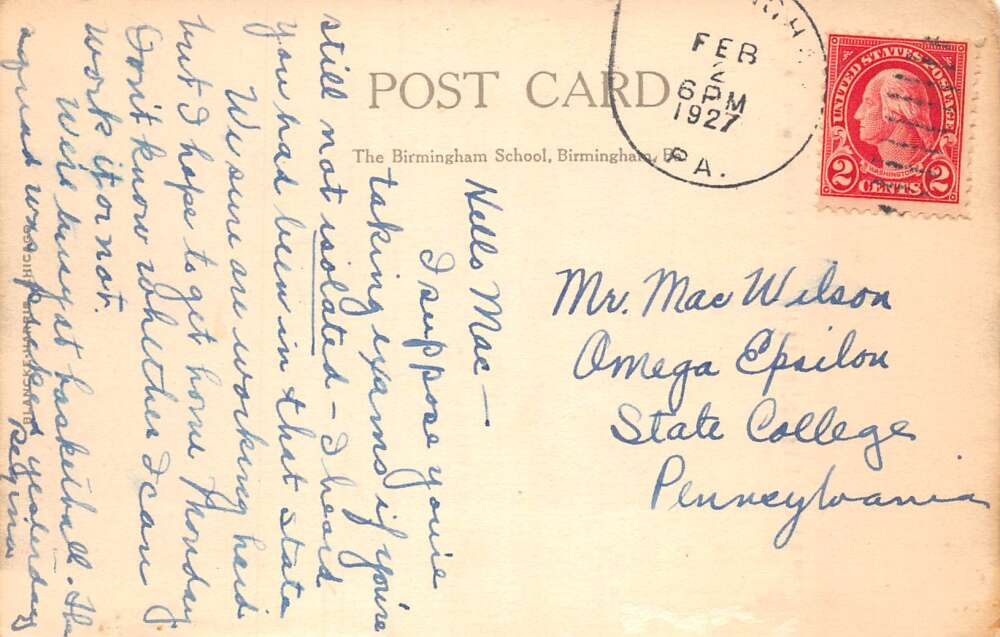 POST CARD
The Birmingham School, Birmingham, Pa.
FEB
2
6 PM
1927
PA.
UNITED STATES POSTAGE
WASHINGTON
2 CENTS 2
Mr. Mac Wilson
Omega Epsilon
State College
Pennsylvania
Hello Mac —
I suppose you're
taking exams if you're
still not isolated – I heard
you had been in that state
We sure are working hard
but I hope to get home Monday
Don't know whether I can
work it or not.
We're busy at basketball. The
squad was picked yesterday
Regina
CHICAGO